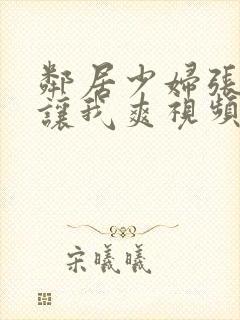 鄰居少婦張
讓我爽視頻
宋曦曦